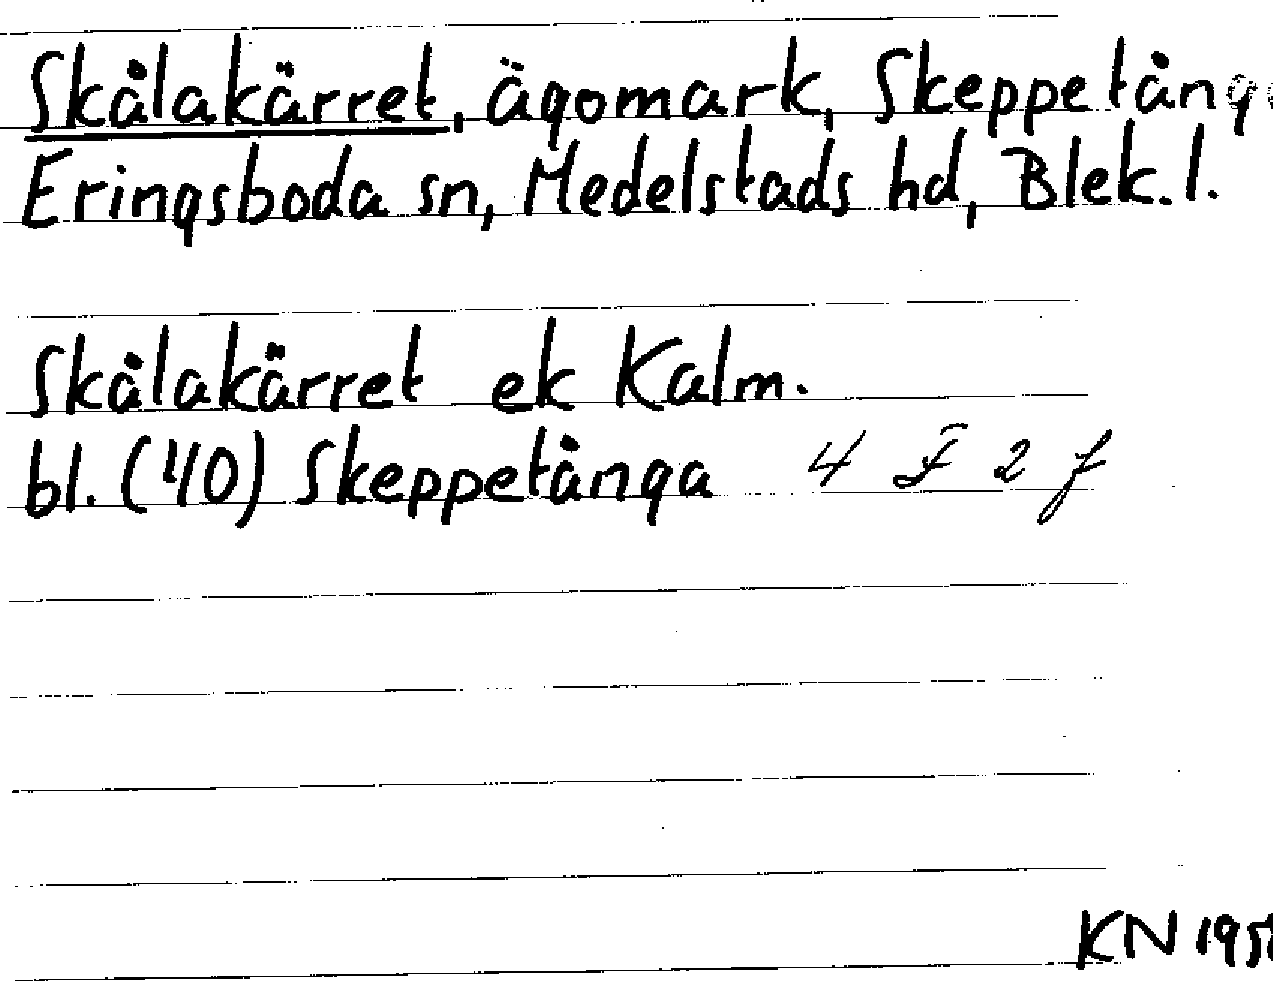 Skålakärret, ägomark, Skeppetånga
Eringsboda sn, Medelstads hd, Blek. l.
Skålakärret ek Kalm.
bl. (40) Skeppetånga 4 F 2 f
KN